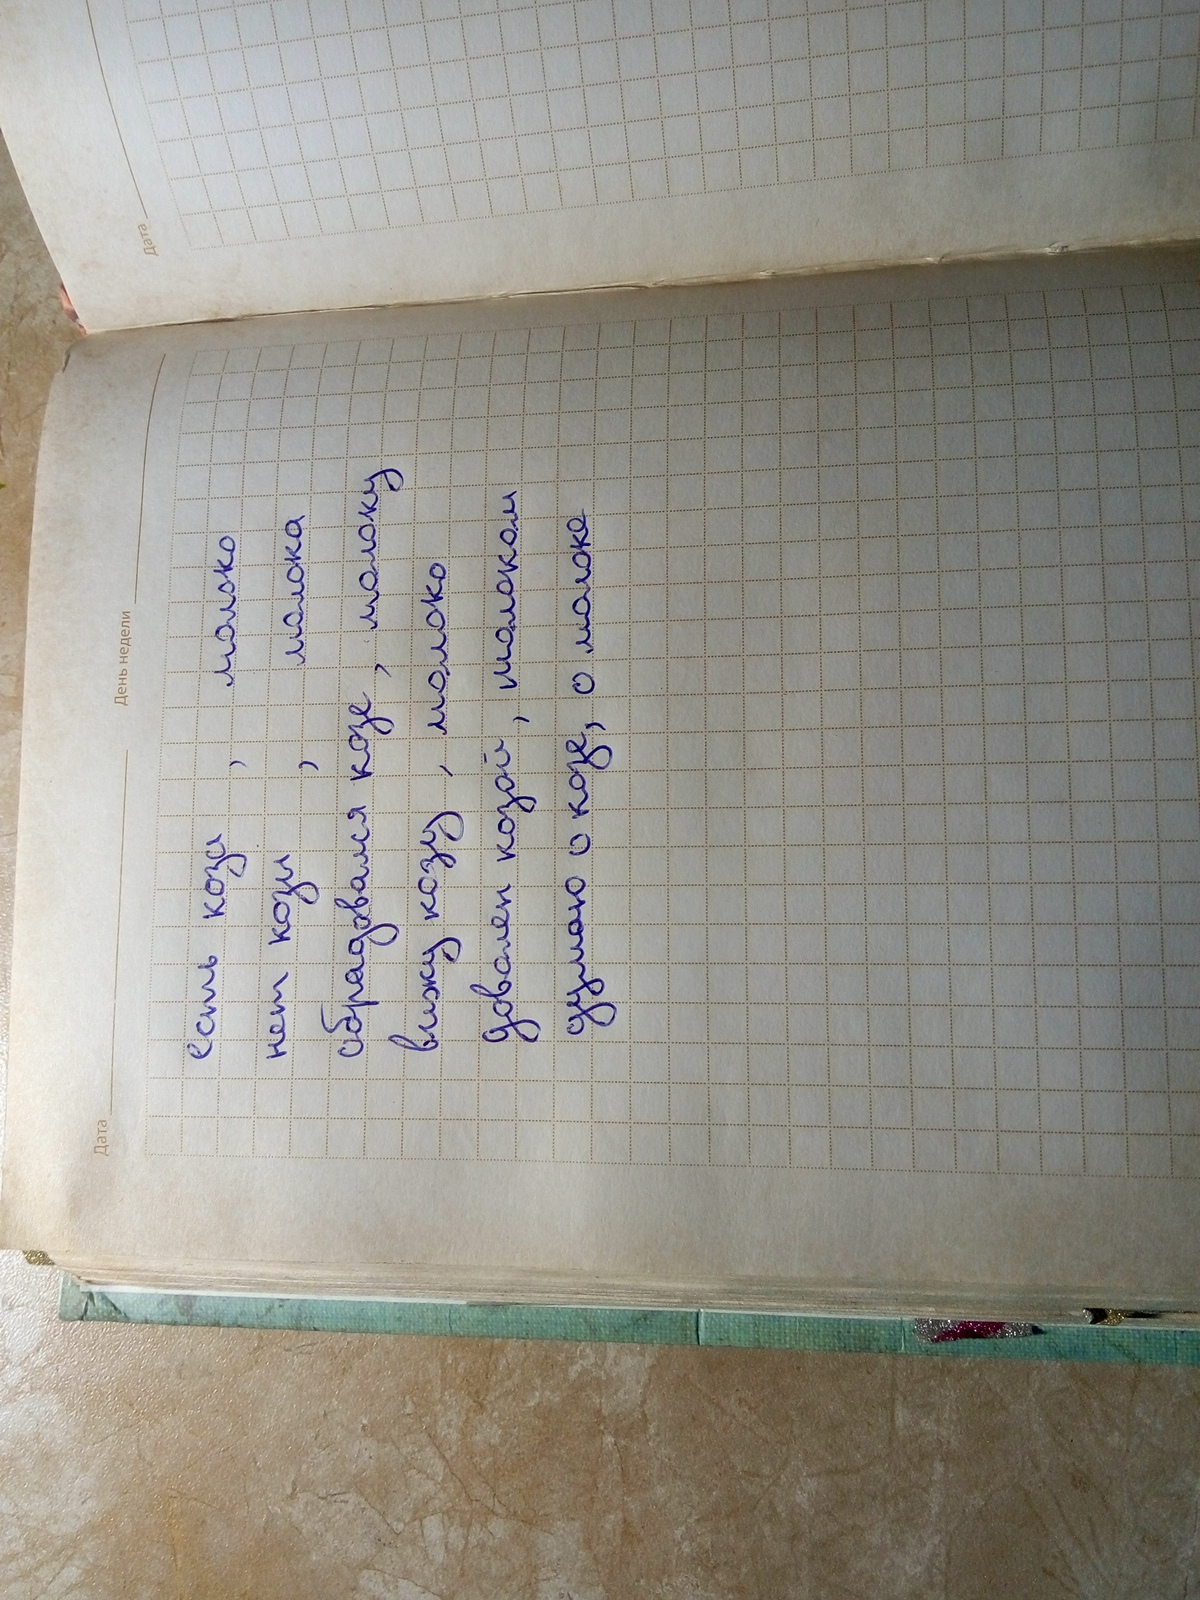 Дата День недели
есть коза, молоко
нет козы, молока
обрадовался козе, молоку
вижу козу, молоко
доволен козой, молоком
думаю о козе, о молоке
Дата